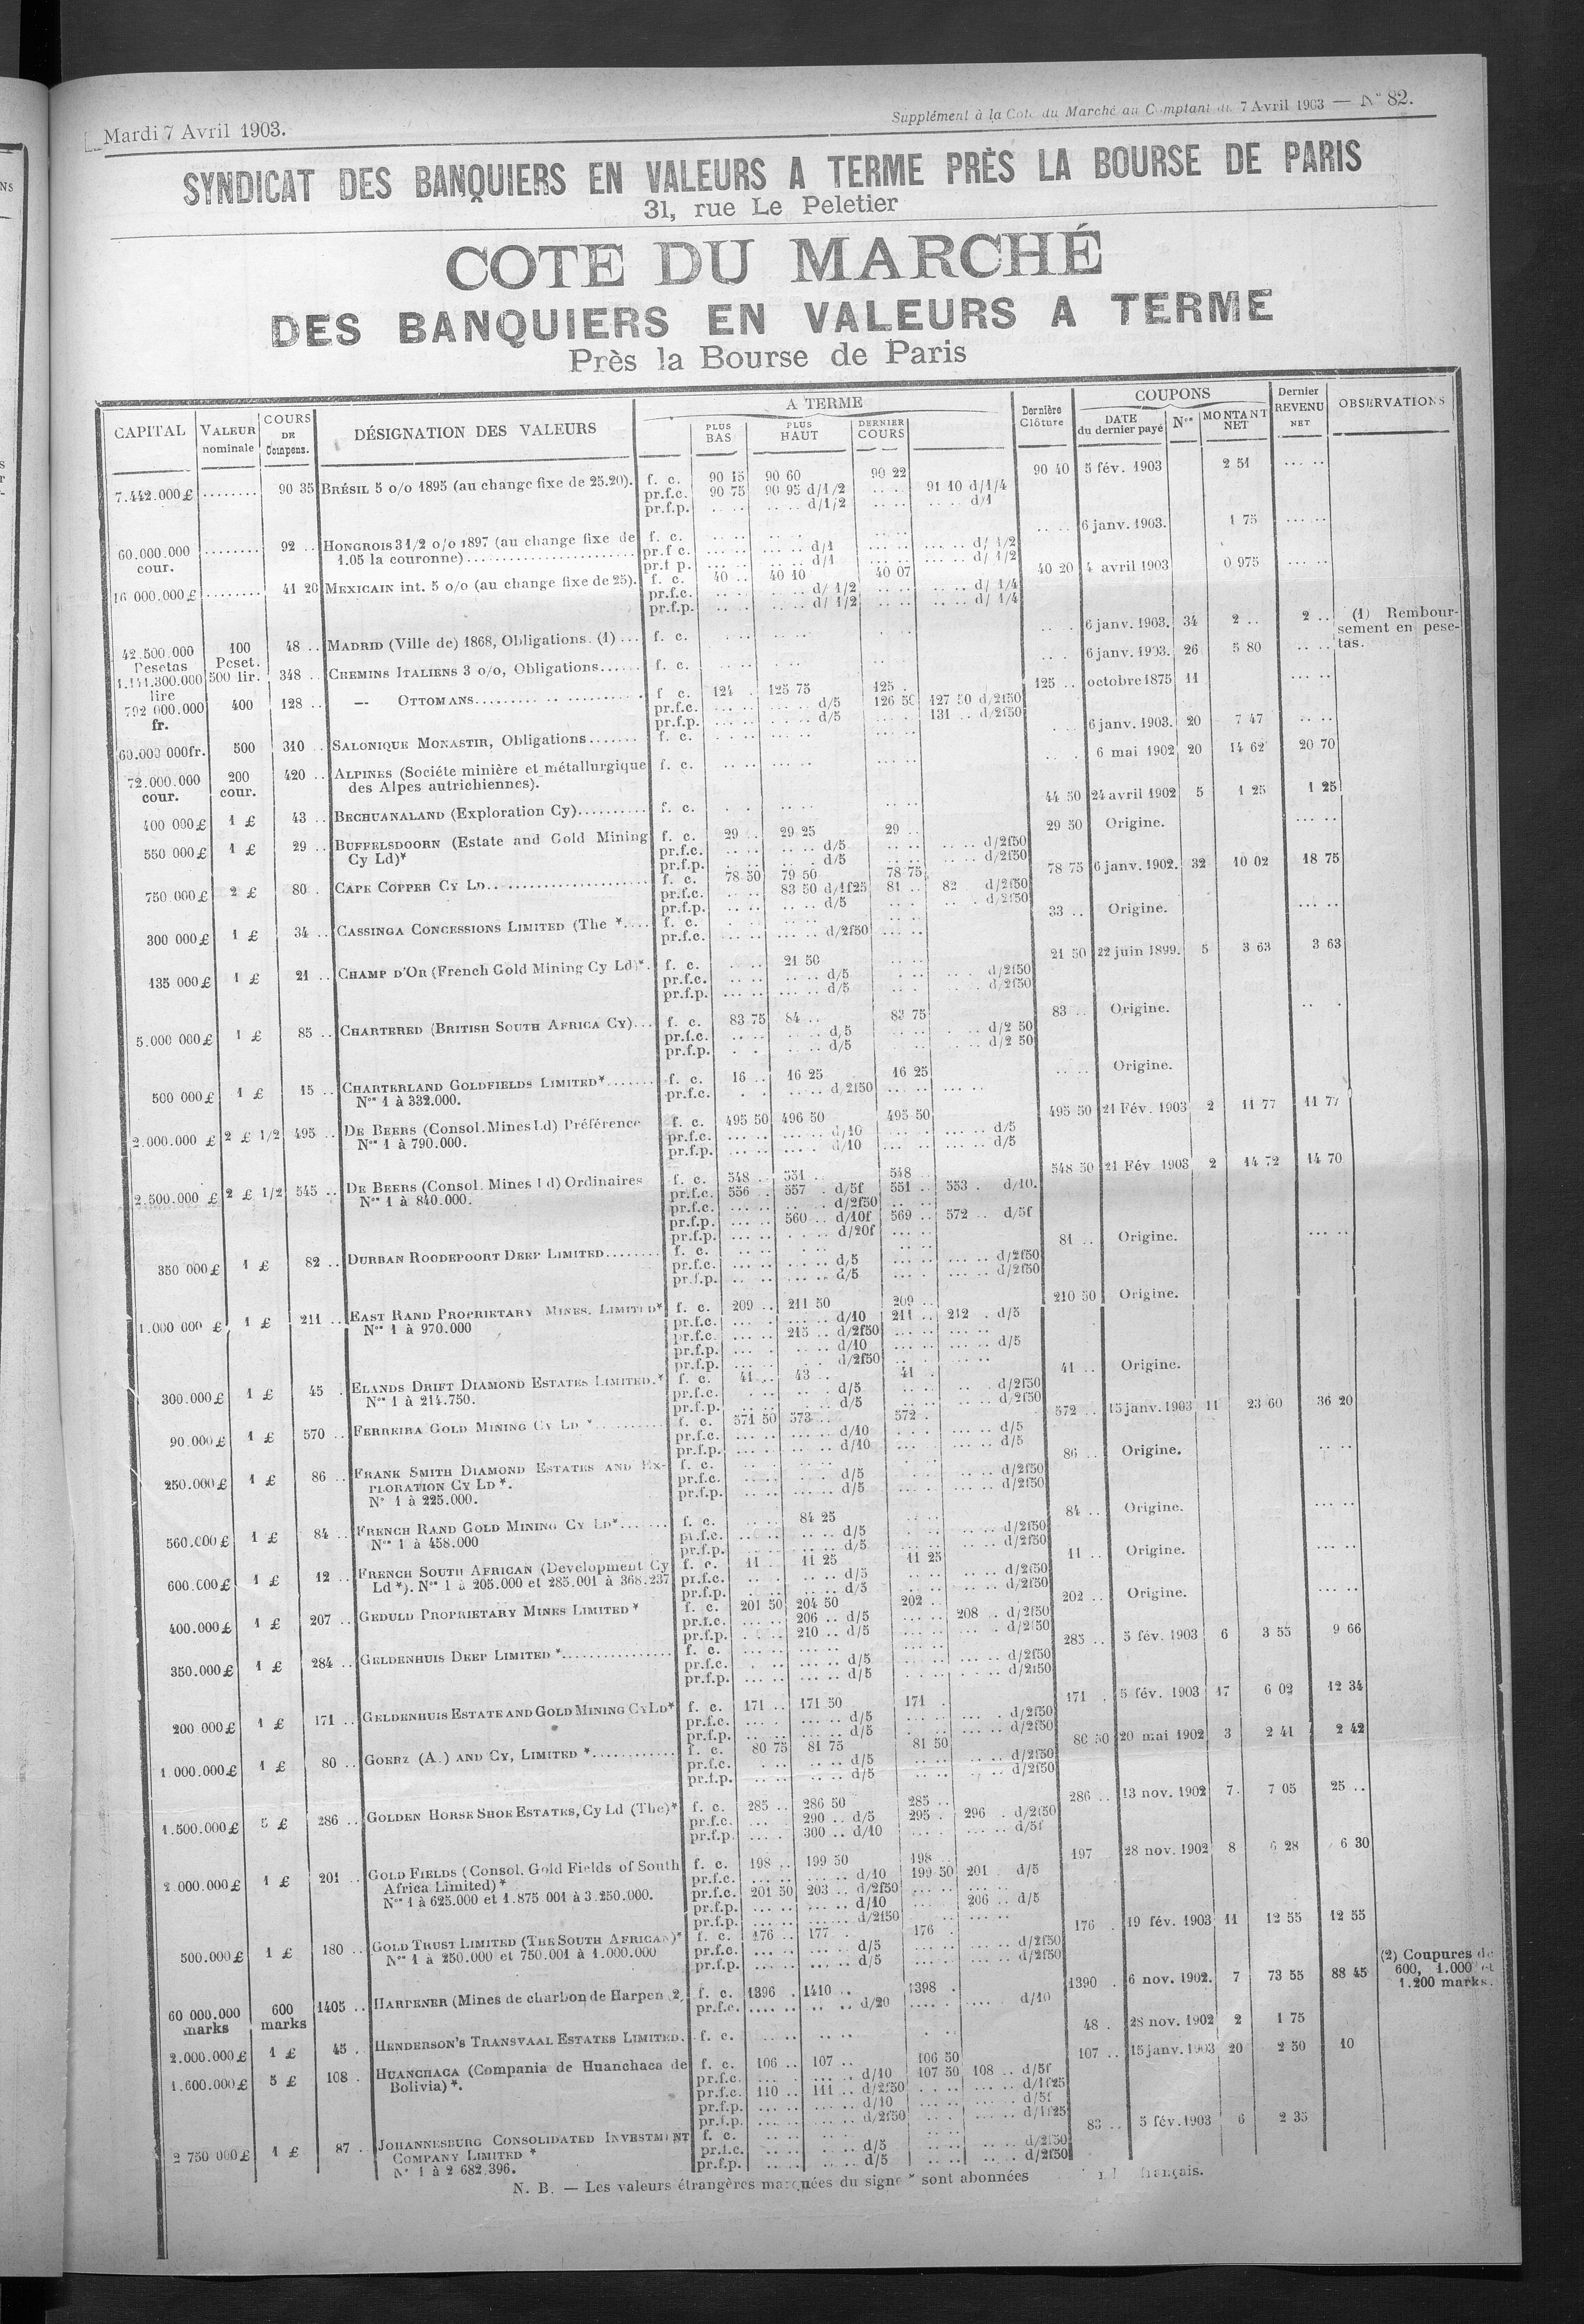 Mardi 7 Avril 1903.
Supplément à la Cote du Marché au Comptant du 7 Avril 1903 — N° 82.
SYNDICAT DES BANQUIERS EN VALEURS A TERME PRÈS LA BOURSE DE PARIS
31, rue Le Peletier
COTE DU MARCHÉ
DES BANQUIERS EN VALEURS A TERME
Près la Bourse de Paris
CAPITAL VALEUR nominale COURS DE Compens. DÉSIGNATION DES VALEURS A TERME PLUS BAS PLUS HAUT DERNIER COURS Dernière Clôture COUPONS DATE du dernier payé Nos MONTANT NET Dernier REVENU NET OBSERVATIONS
7.442.000 £ ........ 90 35 BRÉSIL 5 o/o 1895 (au change fixe de 25.20). f. c. 90 15 90 60 90 22 90 40 5 fév. 1903 2 51
pr.f.c. 90 75 90 95 d/1/2 91 10 d/1/4
pr.f.p. d/1/2 d/1
60.000.000 cour. ........ 92 .. HONGROIS 3 1/2 o/o 1897 (au change fixe de f. c. 6 janv. 1903. 1 75
1.05 la couronne) pr.f.c. d/1 d/ 1/2
pr.f.p. d/1 d/ 1/2
16 000.000 £ ........ 41 20 MEXICAIN int. 5 o/o (au change fixe de 25). f. c. 40 .. 40 10 40 07 40 20 4 avril 1903 0 975
pr.f.c. d/ 1/2 d/ 1/4
pr.f.p. d/ 1/2 d/ 1/4
42.500.000 Pesetas 100 Peset. 48 .. MADRID (Ville de) 1868, Obligations. (1) ... f. c. 6 janv. 1903. 34 2 .. 2 .. (1) Rembour-
sement en pese-
tas.
1.141.300.000 lire 500 lir. 348 .. CHEMINS ITALIENS 3 o/o, Obligations...... f. c. 6 janv. 1903. 26 5 80
792 000.000 fr. 400 128 .. — OTTOMANS f. c. 124 . 125 75 125 . 125 .. octobre 1875 11
pr.f.c. d/5 126 50 127 50 d/2f50
pr.f.p. d/5 131 .. d/2f50
60.000 000 fr. 500 310 .. SALONIQUE MONASTIR, Obligations....... f. c. 6 janv. 1903. 20 7 47
72.000.000 cour. 200 cour. 420 .. ALPINES (Sociéte minière et métallurgique f. c. 6 mai 1902 20 14 62 20 70
des Alpes autrichiennes).
400 000 £ 1 £ 43 .. BECHUANALAND (Exploration Cy).......... f. c. 44 50 24 avril 1902 5 1 25 1 25
550 000 £ 1 £ 29 .. BUFFELSDOORN (Estate and Gold Mining f. c. 29 .. 29 25 29 .. 29 50 Origine.
Cy Ld)* pr.f.c. d/5 d/2f50
pr.f.p. d/5 d/2f50
750 000 £ 2 £ 80 . CAPE COPPER CY LD f. c. 78 50 79 50 78 75 78 75 6 janv. 1902. 32 10 02 18 75
pr.f.c. 83 50 d/1f25 81 .. 82 d/2f50
pr.f.p. d/5 d/2f50
300 000 £ 1 £ 34 .. CASSINGA CONCESSIONS LIMITED (The *.... f. c. 33 .. Origine.
pr.f.c. d/2f50
135 000 £ 1 £ 21 .. CHAMP D'OR (French Gold Mining Cy Ld)*. f. c. 21 50 21 50 22 juin 1899. 5 3 63 3 63
pr.f.c. d/5 d/2f50
pr.f.p. d/5 d/2f50
5.000 000 £ 1 £ 85 .. CHARTERED (BRITISH SOUTH AFRICA CY)... f. c. 83 75 84 .. 83 75 83 .. Origine.
pr.f.c. d/5 d/2 50
pr.f.p. d/5 d/2 50
500 000 £ 1 £ 15 .. CHARTERLAND GOLDFIELDS LIMITED*....... f. c. 16 .. 16 25 16 25 Origine.
Nos 1 à 332.000. pr.f.c. d/2f50
2.000.000 £ 2 £ 1/2 495 .. DE BEERS (Consol. Mines Ld) Préférence f. c. 495 50 496 50 495 50 495 50 21 Fév. 1903 2 11 77 11 77
Nos 1 à 790.000. pr.f.c. d/10 d/5
pr.f.p. d/10 d/5
2.500.000 £ 2 £ 1/2 545 .. DE BEERS (Consol. Mines Ld) Ordinaires f. c. 548 .. 551 . 548 .. 548 50 21 Fév 1903 2 14 72 14 70
Nos 1 à 840.000. pr.f.c. 556 . 557 . d/5f 551 .. 553 . d/10.
pr.f.c. d/2f50
pr.f.p. 560 .. d/10f 569 .. 572 .. d/5f
pr.f.p. d/20f
350 000 £ 1 £ 82 .. DURBAN ROODEPOORT DEEP LIMITED........ f. c. 81 .. Origine.
pr.f.c. d/5 d/2f50
pr.f.p. d/5 d/2f50
1.000 000 £ 1 £ 211 .. EAST RAND PROPRIETARY MINES. LIMITED* f. c. 209 .. 211 50 209 .. 210 50 Origine.
Nos 1 à 970.000 pr.f.c. d/10 211 .. 212 . d/5
pr.f.c. 215 .. d/2f50
pr.f.p. d/10 d/5
pr.f.p. d/2f50
300.000 £ 1 £ 45 . ELANDS DRIFT DIAMOND ESTATES LIMITED.* f. c. 41 .. 43 .. 41 . 41 .. Origine.
Nos 1 à 214.750. pr.f.c. d/5 d/2f50
pr.f.p. d/5 d/2f50
90.000 £ 1 £ 570 .. FERREIRA GOLD MINING CY LD *.......... f. c. 571 50 573 .. 572 . 572 .. 15 janv. 1903 11 23 60 36 20
pr.f.c. d/10 d/5
pr.f.p. d/10 d/5
250.000 £ 1 £ 86 .. FRANK SMITH DIAMOND ESTATES AND EX- f. c. 86 .. Origine.
PLORATION CY LD *. pr.f.c. d/5 d/2f50
N° 1 à 225.000. pr.f.p. d/5 d/2f50
560.000 £ 1 £ 84 .. FRENCH RAND GOLD MINING CY LD*....... f. c. 84 25 84 .. Origine.
Nos 1 à 458.000 pr.f.c. d/5 d/2f50
pr.f.p. d/5 d/2f50
600.000 £ 1 £ 12 .. FRENCH SOUTH AFRICAN (Development Cy f. c. 11 . 11 25 11 25 11 .. Origine.
Ld *). Nos 1 à 205.000 et 285.001 à 368.237 pr.f.c. d/5 d/2f50
pr.f.p. d/5 d/2f50
400.000 £ 1 £ 207 .. GEDULD PROPRIETARY MINES LIMITED * f. c. 201 50 204 50 202 .. 202 .. Origine.
pr.f.c. 206 .. d/5 208 .. d/2f50
pr.f.p. 210 .. d/5 d/2f50
350.000 £ 1 £ 284 .. GELDENHUIS DEEP LIMITED *............... f. c. 285 .. 5 fév. 1903 6 3 55 9 66
pr.f.c. d/5 d/2f50
pr.f.p. d/5 d/2f50
200 000 £ 1 £ 171 .. GELDENHUIS ESTATE AND GOLD MINING CY LD* f. c. 171 .. 171 50 171 . 171 . 5 fév. 1903 17 6 02 12 34
pr.f.c. d/5 d/2f50
pr.f.p. d/5 d/2f50
1 000.000 £ 1 £ 80 .. GOERZ (A.) AND CY, LIMITED *............ f. c. 80 75 81 75 81 50 80 50 20 mai 1902 3 2 41 2 42
pr.f.c. d/5 d/2f50
pr.f.p. d/5 d/2f50
1.500.000 £ 5 £ 286 .. GOLDEN HORSE SHOE ESTATES, Cy Ld (The)* f. c. 285 .. 286 50 285 .. 286 .. 13 nov. 1902 7. 7 05 25 ..
pr.f.c. 290 .. d/5 295 . 296 . d/2f50
pr.f.p. 300 .. d/10 d/5f
2 000.000 £ 1 £ 201 .. GOLD FIELDS (Consol. Gold Fields of South f. c. 198 .. 199 50 198 .. 197 28 nov. 1902 8 6 28 6 30
Africa Limited) * pr.f.c. d/10 199 50 201 . d/5
Nos 1 à 625.000 et 1.875 001 à 3.250.000. pr.f.c. 201 50 203 .. d/2f50
pr.f.p. d/10 206 .. d/5
pr.f.p. d/2f50
500.000 £ 1 £ 180 .. GOLD TRUST LIMITED (THE SOUTH AFRICAN)* f. c. 176 .. 177 .. 176 . 176 . 19 fév. 1903 11 12 55 12 55
Nos 1 à 250.000 et 750.001 à 1.000.000 pr.f.c. d/5 d/2f50
pr.f.p. d/5 d/2f50
60 000.000 marks 600 marks 1405 .. HARPENER (Mines de charbon de Harpen 2. f. c. 1396 . 1410 .. 1398 . 1390 . 6 nov. 1902. 7 73 55 88 45 (2) Coupures de
600, 1.000 et
1.200 marks.
pr.f.c. d/20 d/10
2.000.000 £ 1 £ 45 . HENDERSON'S TRANSVAAL ESTATES LIMITED. f. c. 48 . 28 nov. 1902 2 1 75
1.600.000 £ 5 £ 108 . HUANCHACA (Compania de Huanchaca de f. c. 106 .. 107 .. 106 50 107 .. 15 janv. 1903 20 2 50 10
Bolivia) *. pr.f.c. d/10 107 50 108 .. d/5f
pr.f.c. 110 .. 111 .. d/2f50 d/1f25
pr.f.p. d/10 d/5f
pr.f.p. d/2f50 d/1f25
2 750 000 £ 1 £ 87 . JOHANNESBURG CONSOLIDATED INVESTMENT f. c. 83 .. 5 fév. 1903 6 2 35
COMPANY LIMITED * pr.f.c. d/5 d/2f50
N° 1 à 2 682.396. pr.f.p. d/5 d/2f50
N. B. — Les valeurs étrangères marquées du signe * sont abonnées français.